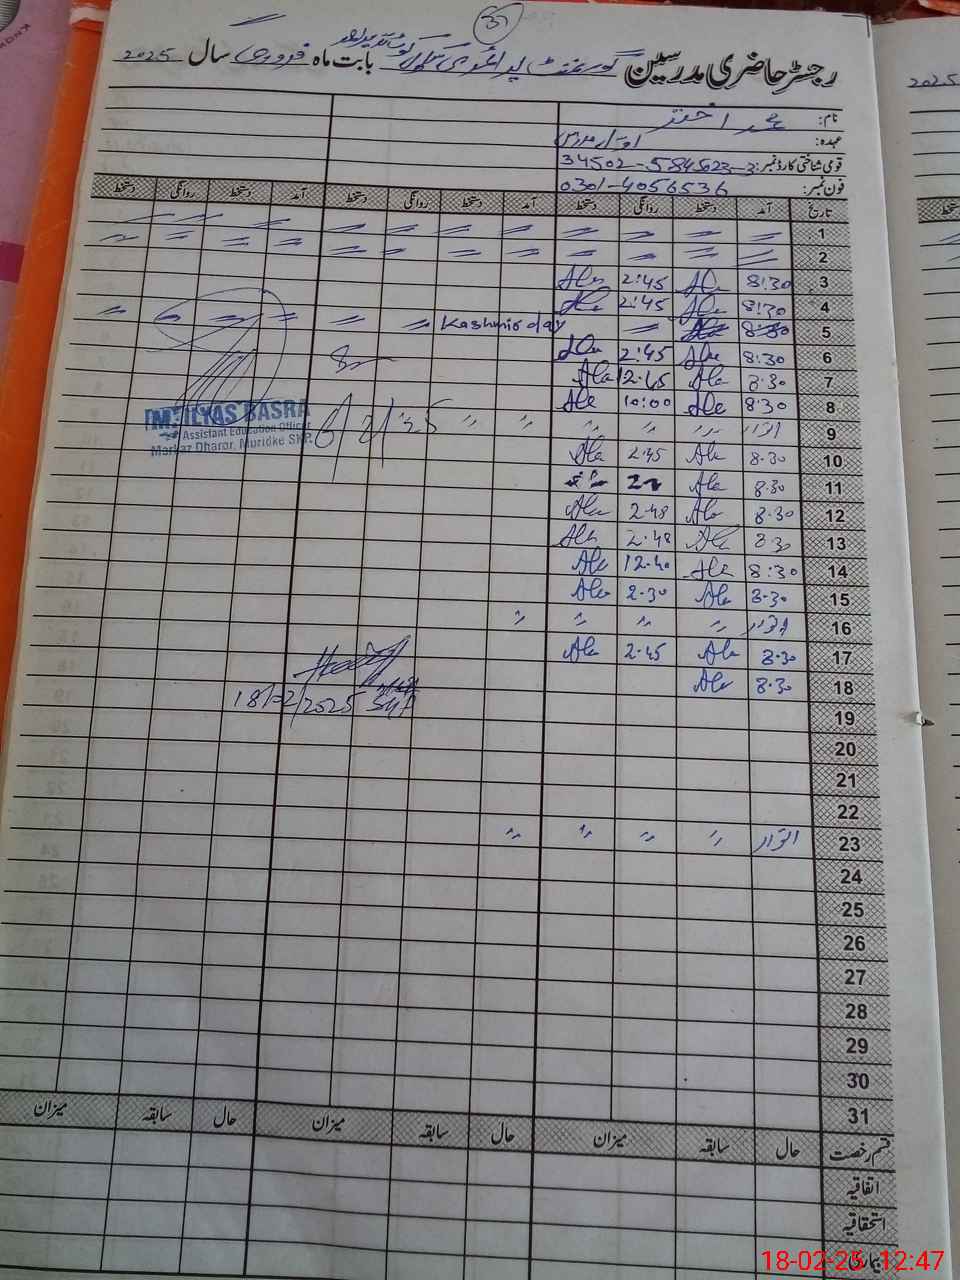 31
رجسٹر حاضری مدرسین گورنمنٹ پرائمری سکول بابت ماہ فروری سال 2025
نام: محمد اختر
عہدہ:
قومی شناختی کارڈ نمبر: 34502-5845023-3
فون نمبر: 0301-4056536
تاریخ آمد دستخط روانگی دستخط آمد دستخط روانگی دستخط آمد دستخط روانگی دستخط
1 〃 〃 〃 〃 〃 〃 〃 〃 〃 〃
2 〃 〃 〃 〃 〃 〃 〃 〃 〃 〃 〃 〃
3 8:30 2:45
4 8:30 2:45
5 8:30 〃 Kashmir day 〃 〃 〃 〃 〃
6 8:30 2:45
7 8:30 12:45
8 8:30 10:00
M. ILYAS BASRA
Assistant Education Officer
Markaz Dharor, Muridke SKP.
6/2/25
9 اتوار 〃 〃 〃 〃 〃 〃
10 8:30 2:45
11 8:30
12 8:30 2:48
13 8:30 2:48
14 8:30 12:40
15 8:30 2:30
16 اتوار 〃 〃 〃 〃
17 8:30 2:45
18 8:30
18/02/2025
19
20
21
22
23 اتوار 〃 〃 〃 〃
24
25
26
27
28
29
30
31
قسم رخصت حال سابقہ میزان حال سابقہ میزان حال سابقہ میزان
اتفاقیہ
استحقاقیہ
بیماری
18-02-25 12:47
2025